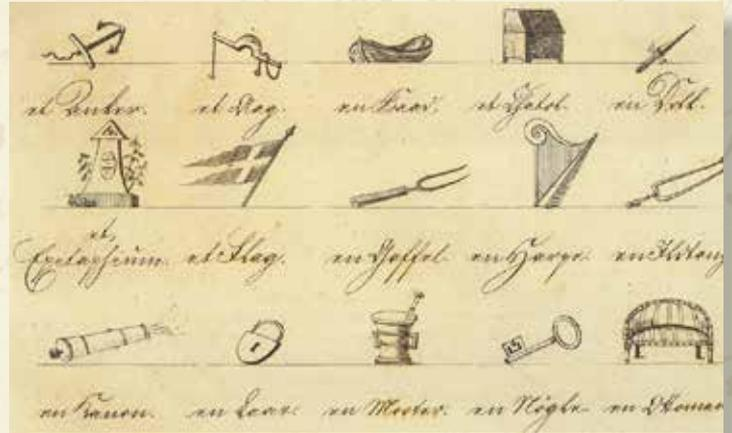 et Anker. et Aag. en Baad. et Chatol. en Dolk.
et
Epitaphium. et Flag. en Gaffel. en Harpe. en Ildtang
en Kanon. en Laas. en Morter. en Nögle. en Ottoman